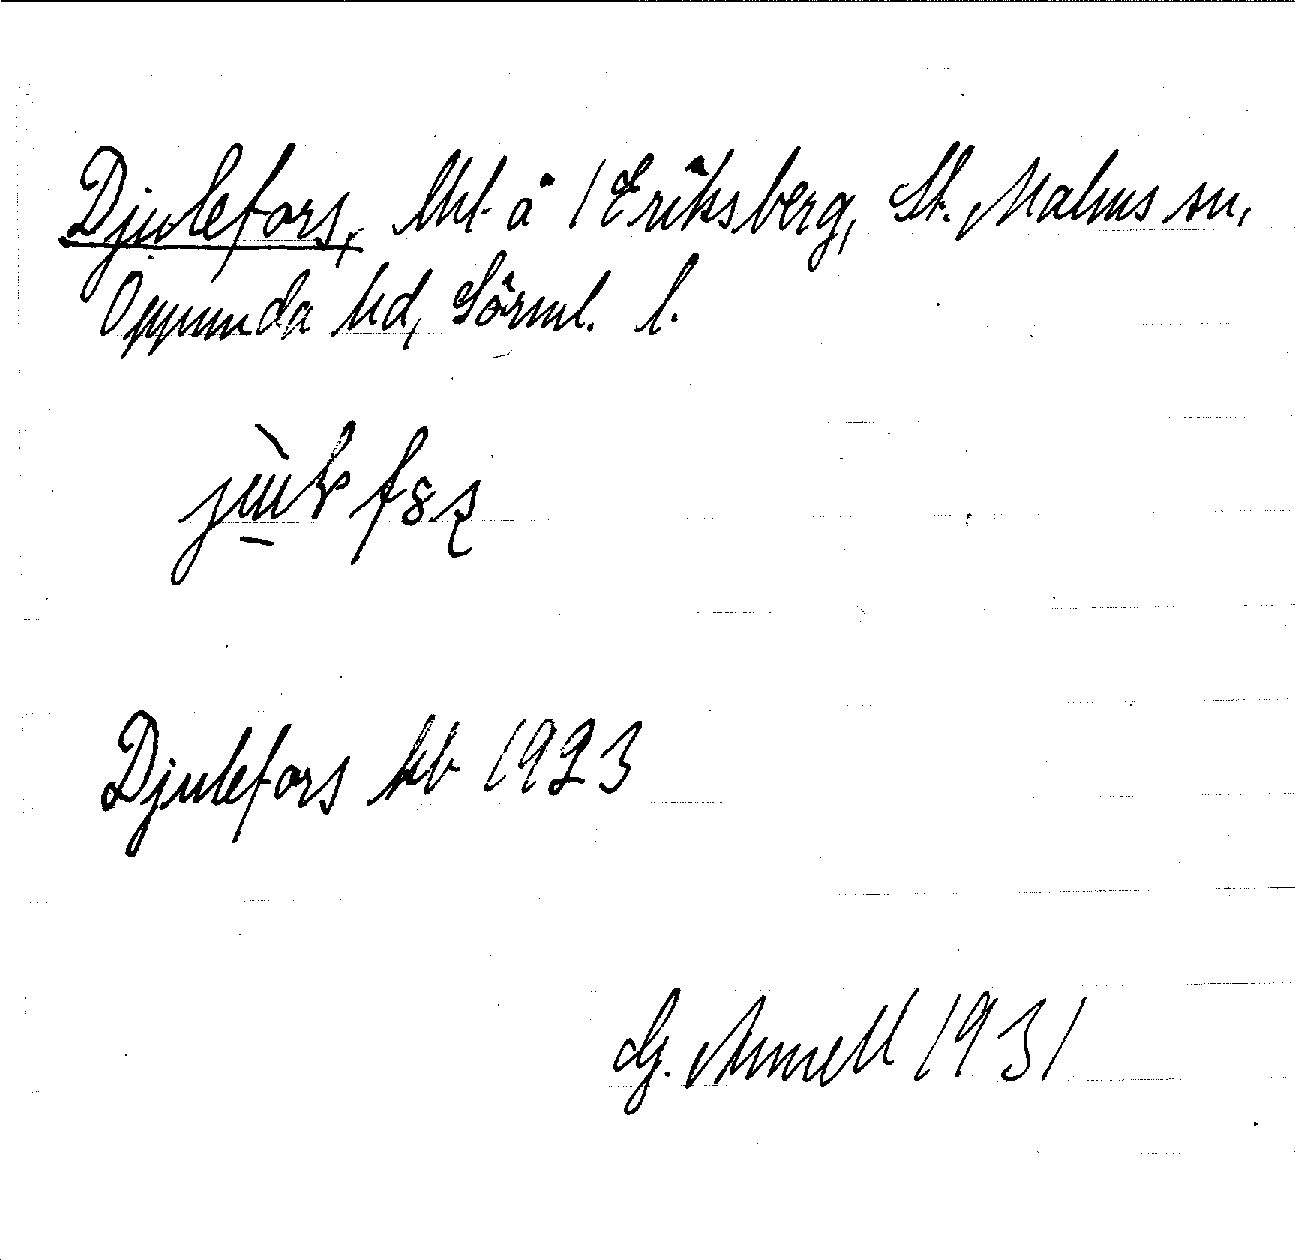 Djulefors, lht å 1 Eriksberg, St. Malms sn,
Oppunda hd, Sörml. l.
Djulefors kb 1923
G. Annell 1931